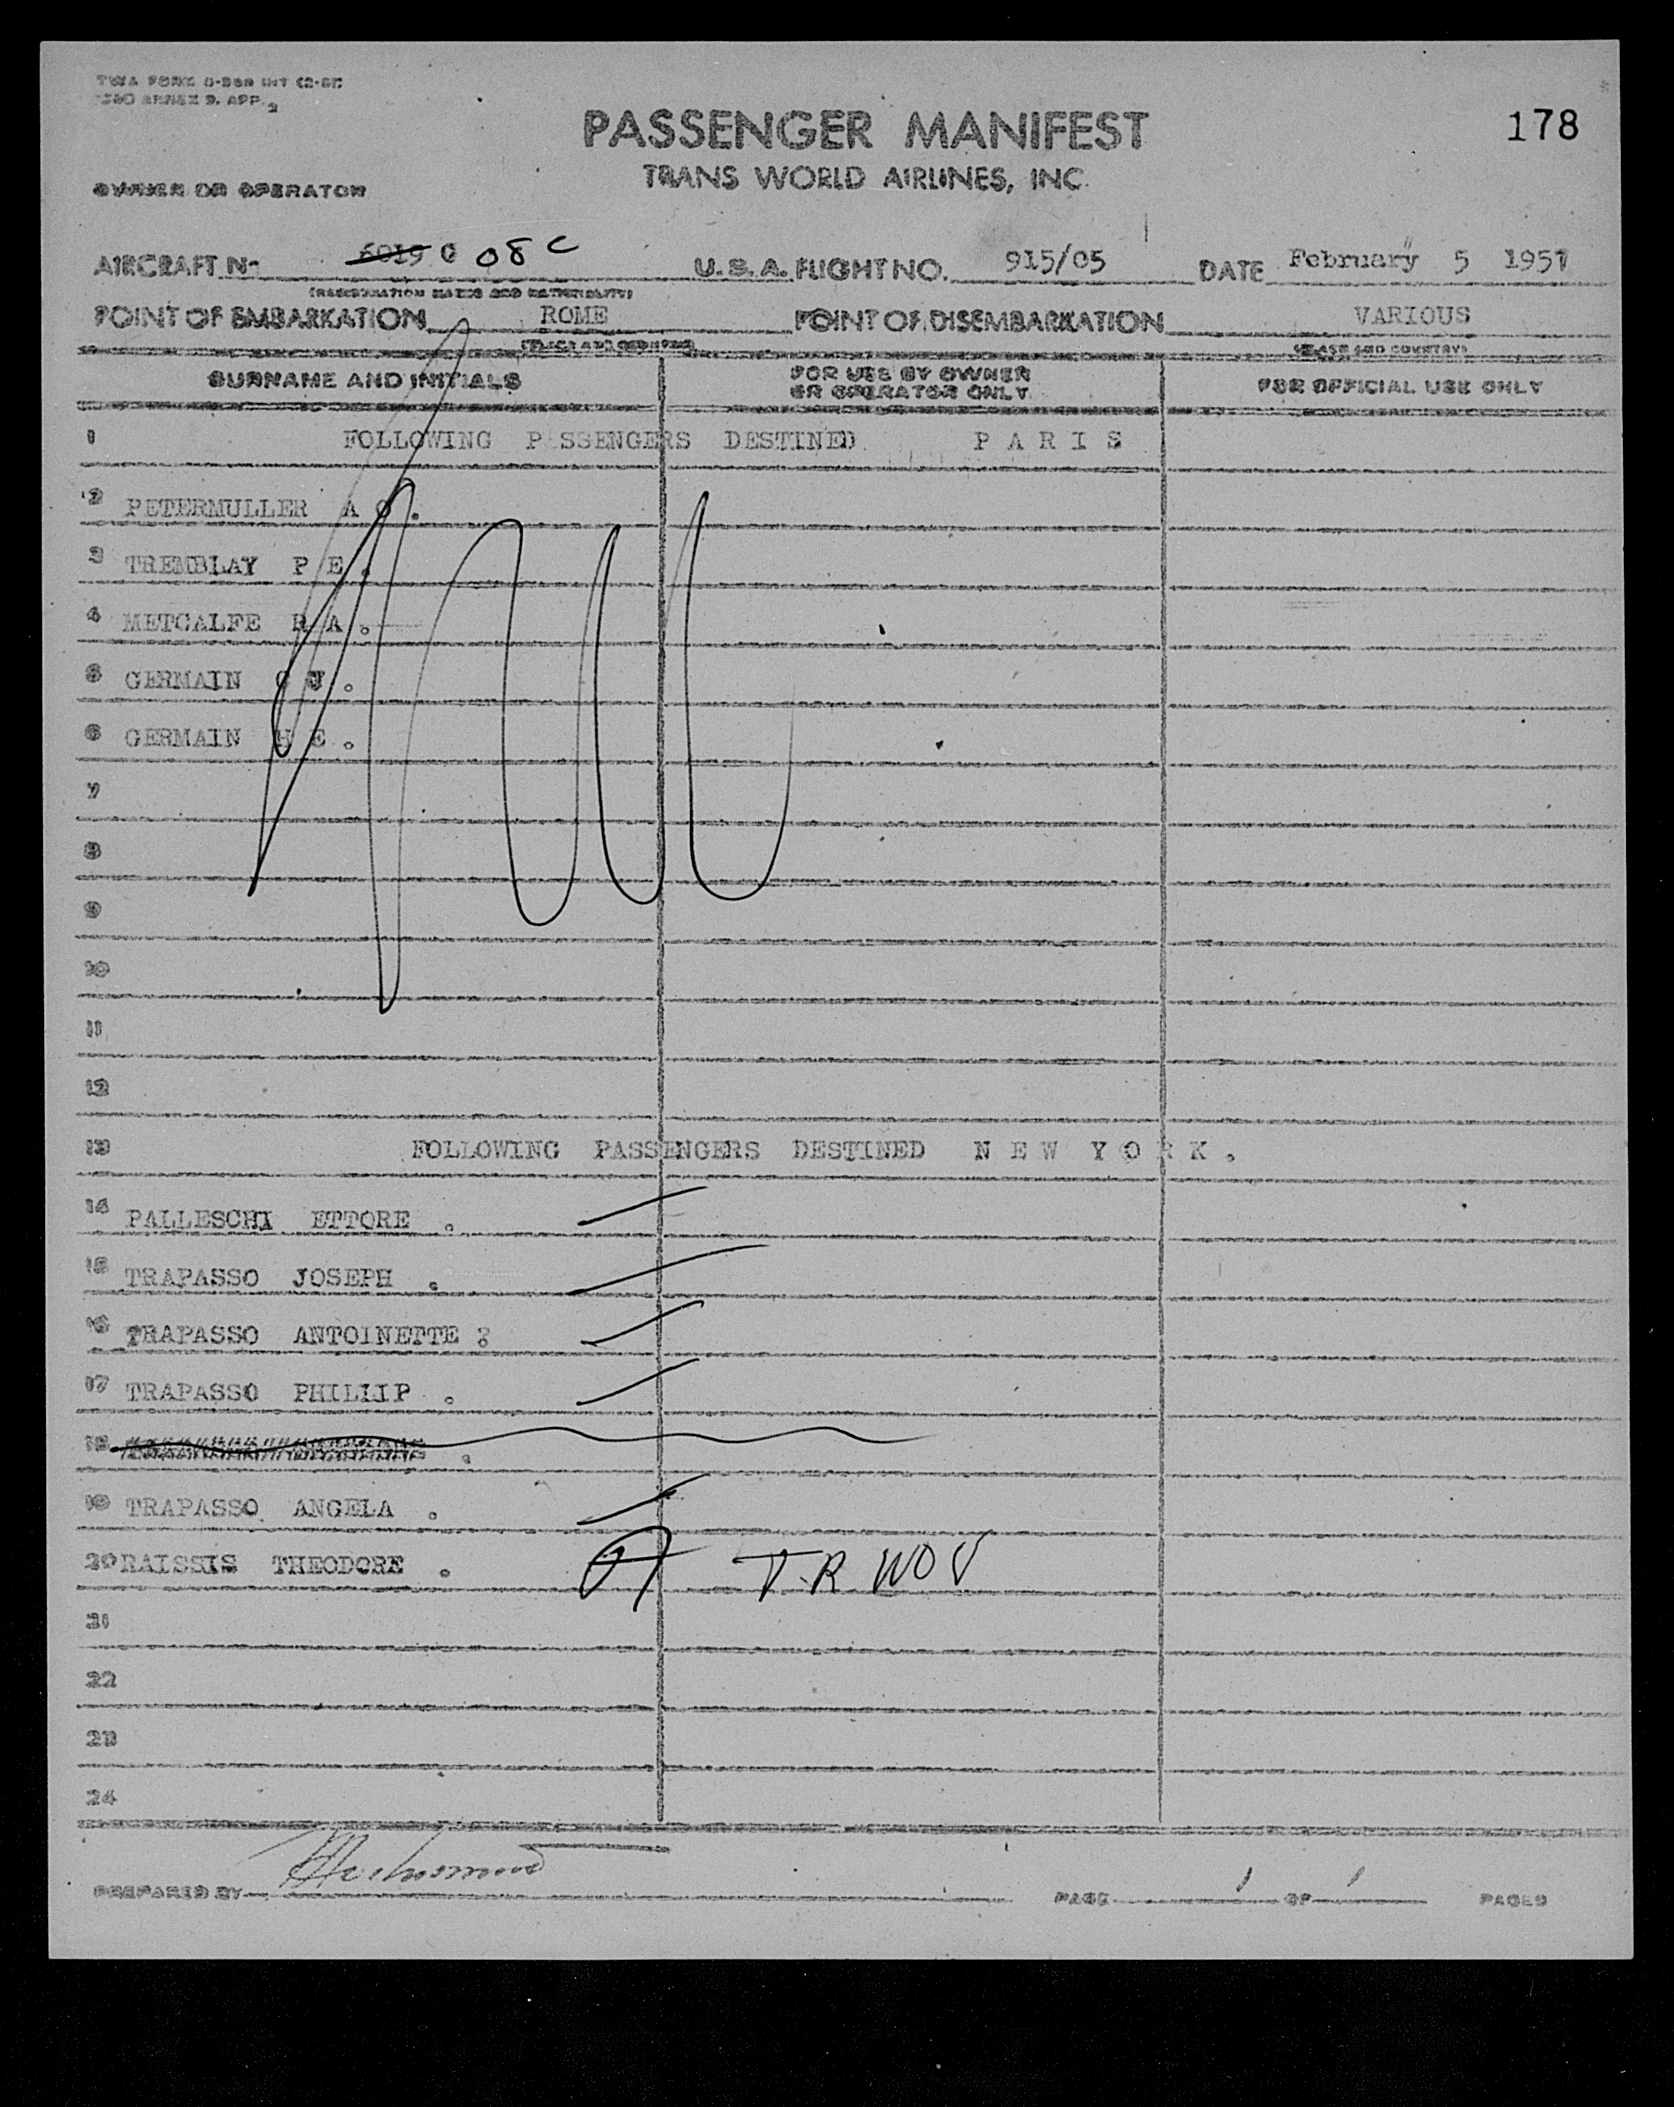 TWA FORM
ANNEX 9, APP. 2
178
PASSENGER MANIFEST
TRANS WORLD AIRLINES, INC.
OWNER OR OPERATOR
AIRCRAFT No 6019 C 08 C U.S.A. FLIGHT NO. 915/05 DATE February 5 1951
(REGISTRATION MARKS AND NATIONALITY)
POINT OF EMBARKATION ROME POINT OF DISEMBARKATION VARIOUS
(PLACE AND COUNTRY) (PLACE AND COUNTRY)
SURNAME AND INITIALS FOR USE BY OWNER OR OPERATOR ONLY FOR OFFICIAL USE ONLY
1 FOLLOWING PASSENGERS DESTINED P A R I S
2 PETERMULLER A O.
3 TREMBLAY P E.
4 METCALFE R A.
5 GERMAIN C J.
6 GERMAIN H E.
7
8
9
10
11
12
13 FOLLOWING PASSENGERS DESTINED N E W Y O R K.
14 PALLESCHI ETTORE .
15 TRAPASSO JOSEPH .
16 TRAPASSO ANTOINETTE ?
17 TRAPASSO PHILIIP .
18 .
19 TRAPASSO ANGELA .
20 RAISSIS THEODORE . T.R WOV
21
22
23
24
PREPARED BY PAGE 1 OF 1 PAGES